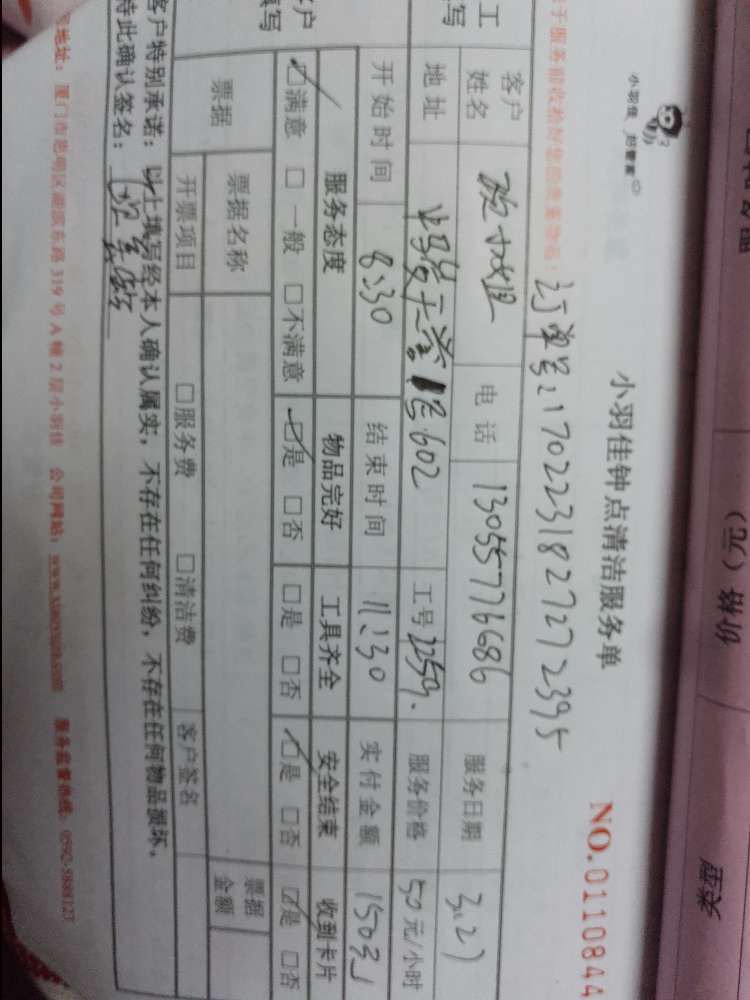 小羽佳 好管家
小羽佳钟点清洁服务单
NO.0110844
订单号:1702231827272395
客户姓名 电话 13055776686 服务日期 3.27
地址 602 工号 2259. 服务价格 50元/小时
开始时间 8:30 结束时间 11:30 实付金额 150元
服务态度 物品完好 工具齐全 安全结束 收到卡片
☑满意 □一般 □不满意 ☑是 □否 □是 □否 ☑是 □否 ☑是 □否
票据 票据名称 票据金额
开票项目 □服务费 □清洁费 客户签名
客户特别承诺:以上填写经本人确认属实,不存在任何纠纷,不存在任何物品损坏,
特此确认签名:
地址:厦门市思明区湖滨东路319号A幢2层小羽佳 公司网站:www.xiaoyujia.com 服务监督热线:0592-5888123
价格(元)